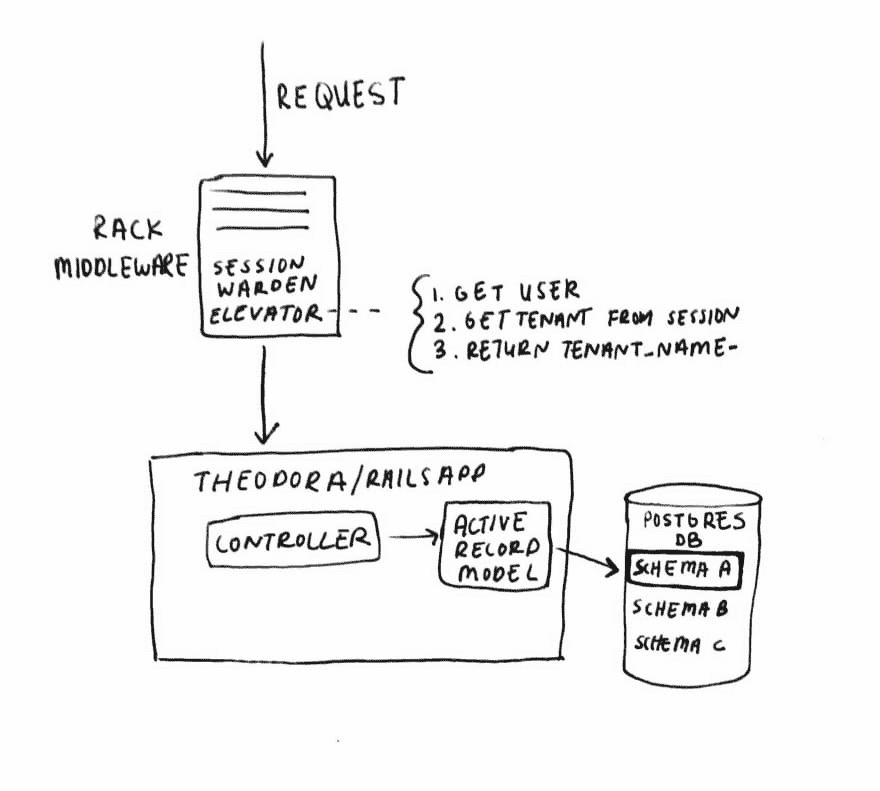 REQUEST
RACK
MIDDLEWARE
SESSION
WARDEN
ELEVATOR
1. GET USER
2. GET TENANT FROM SESSION
3. RETURN TENANT_NAME
THEODORA/RAILS APP
CONTROLLER
ACTIVE
RECORD
MODEL
POSTGRES
DB
SCHEMA A
SCHEMA B
SCHEMA C